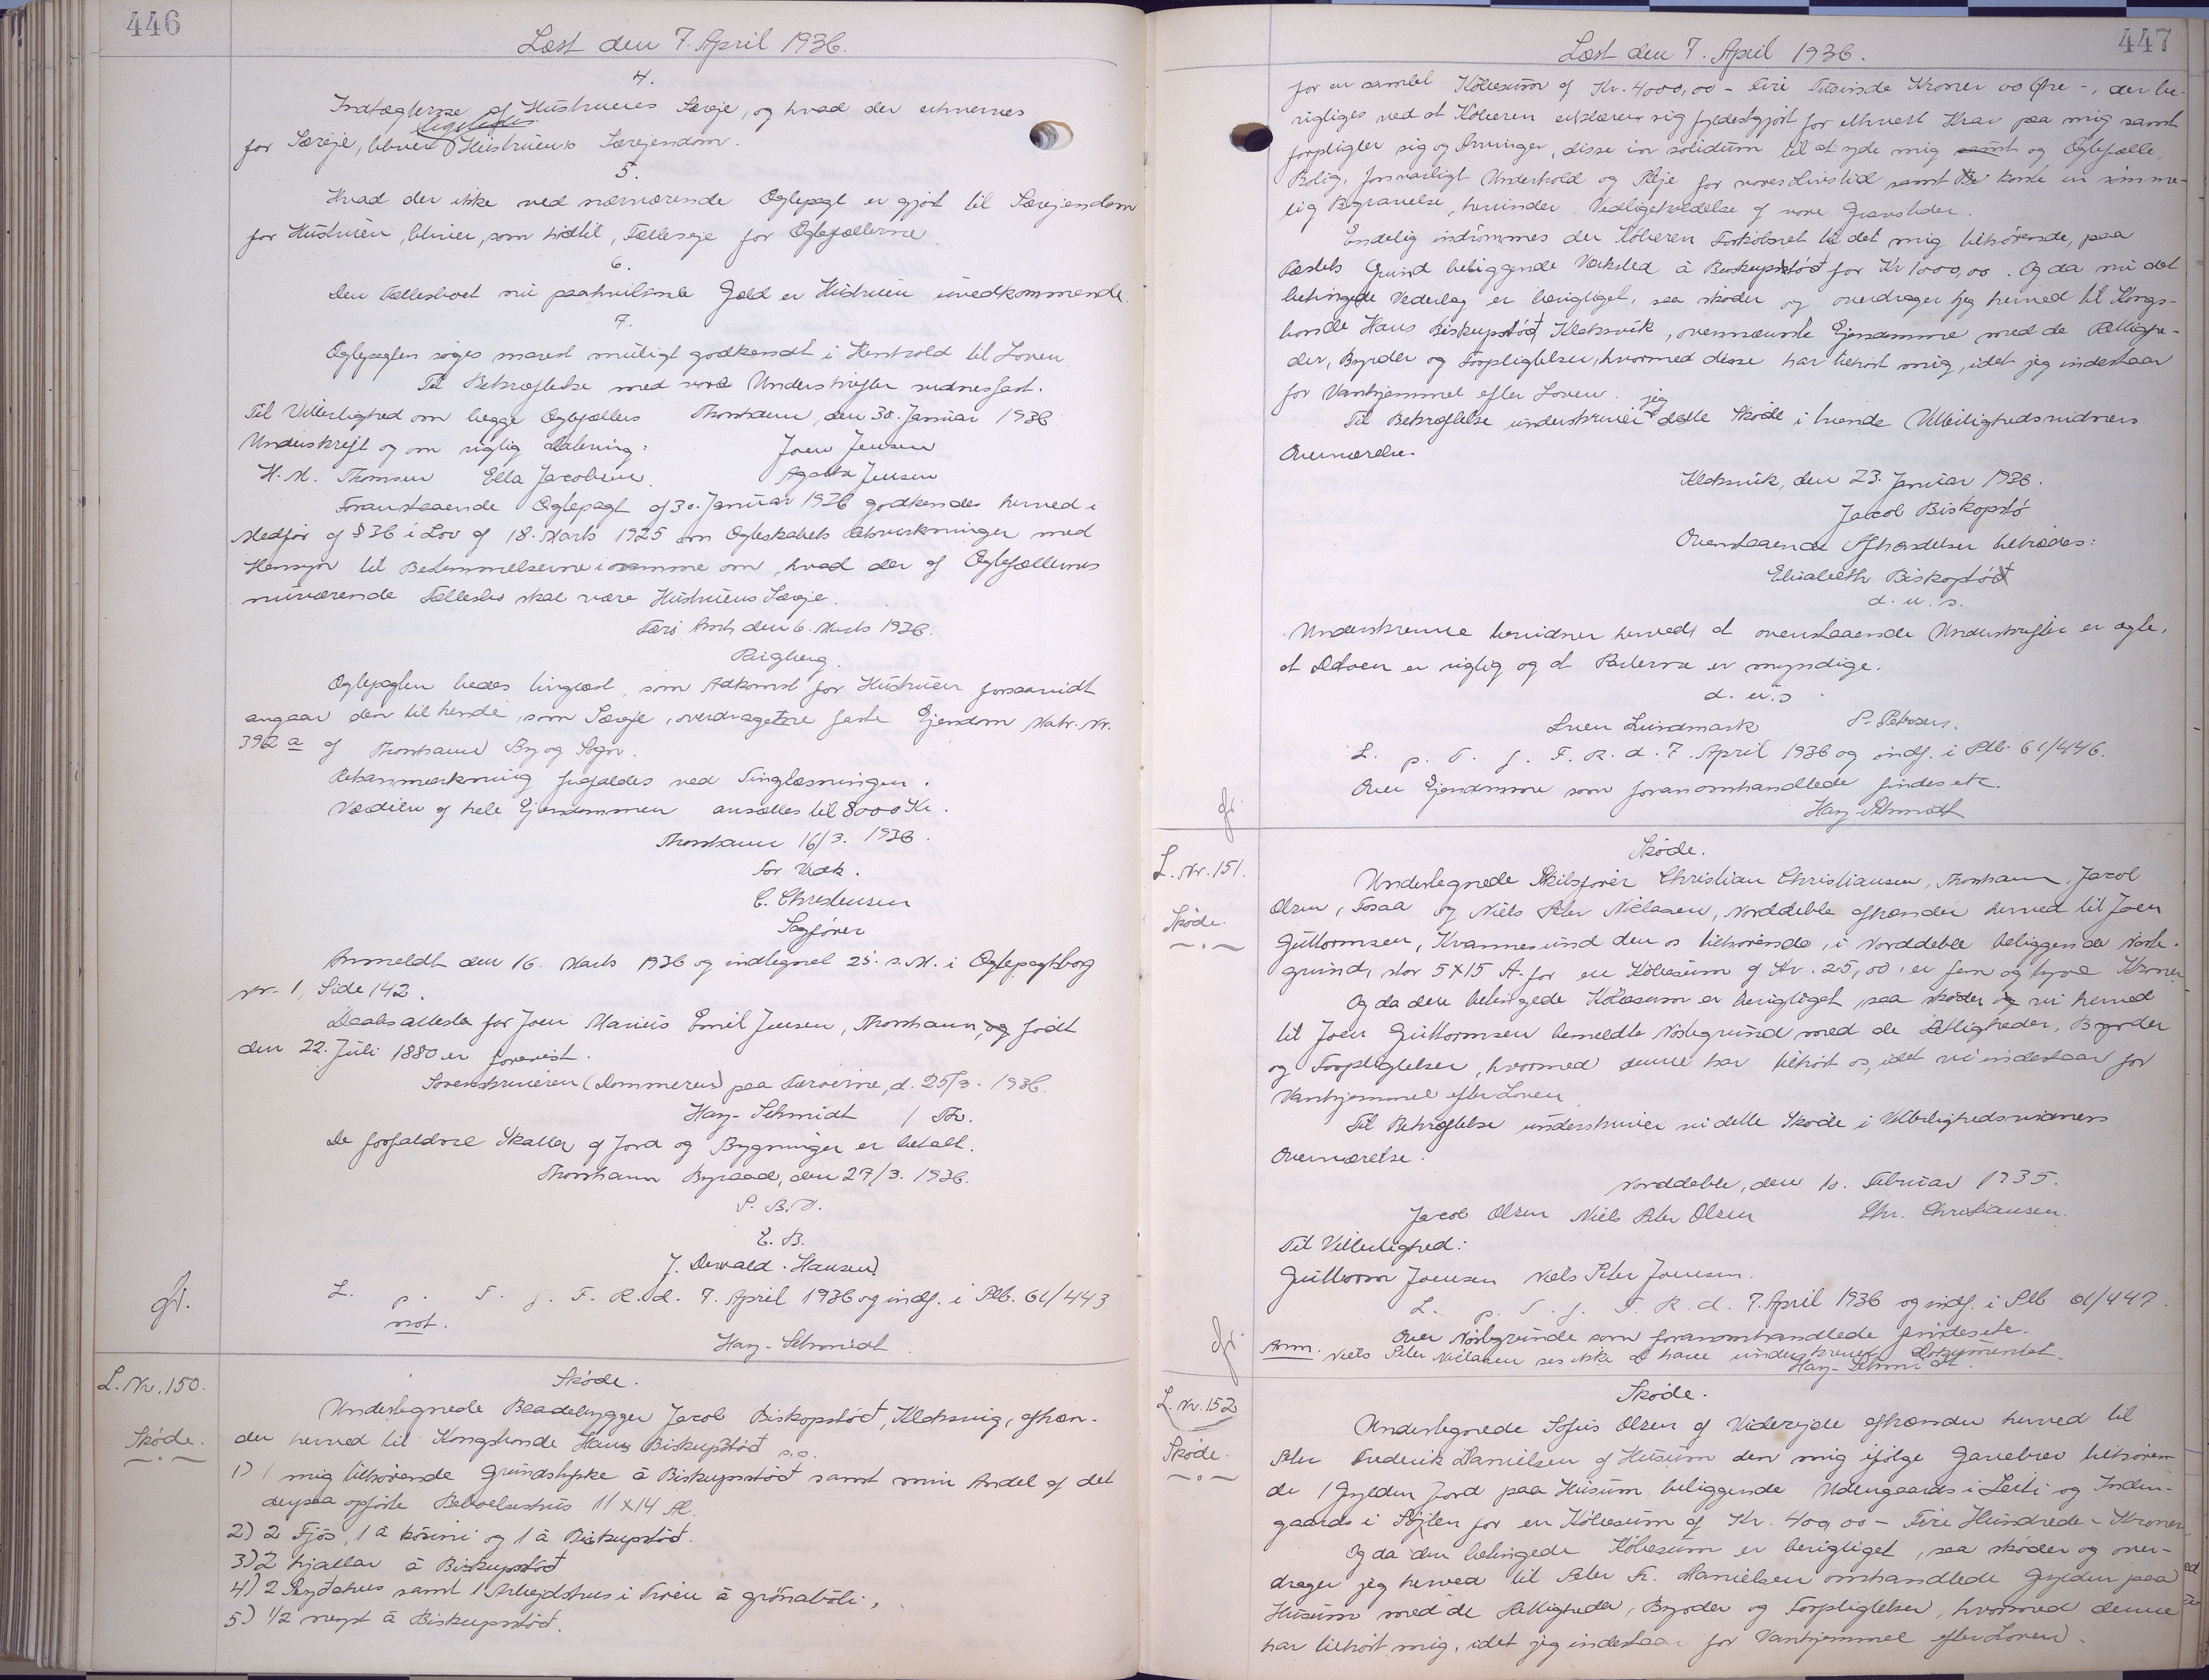 446
Læst den 7. April 1936.
4.
Indtægterne af Hustruens Særeje, og hvad der erhverves
for Særeje, bliver ligeledes Hustruens Særejendom.
5.
Hvad der ikke ved nærværende Ægtepagt er gjort til Særejendom
for Hustruen, bliver, som hidtil, Fælleseje for Ægtefællerne.
6.
Den Fællesboet nu paahvilende Gæld er Hustruen uvedkommende.
7.
Ægtepagten søges snarest muligt godkendt i Henhold til Loven.
Til Bekræftelse med vore Underskrifter vidnesfast.
Til Vitterlighed om begge Ægtefællers Thorshavn, den 30. Januar 1936
Underskrift og om rigtig Datering: Joen Jensen
H. M. Thomsen Ella Jacobsen. Agatha Jensen
Foranstaaende Ægtepagt af 30. Januar 1936 godkendes herved i
Medfør af § 36 i Lov af 18. Marts 1925 om Ægteskabets Retsvirkninger med
Hensyn til Bestemmelserne i samme om, hvad der af Ægtefællernes
nuværende Fælleseje skal være Hustruens Særeje.
Færø Amt, den 6. Marts 1936.
Ringberg.
Ægtepagten bedes tinglæst, som Adkomst for Hustruen forsaavidt
angaar den til hende, som Særeje, overdragetne faste Ejendom Matr. Nr.
392 a af Thorshavn By og Sogn.
Retsanmærkning frafaldes ved Tinglæsningen.
Værdien af hele Ejendommen ansættes til 8000 Kr.
Thorshavn 16/3. 1936.
for Vedk.
C. Christensen
Sagfører
Anmeldt den 16. Marts 1936 og indtegnet 25. s.M. i Ægtepagtsbog
Nr. 1, Side 142.
Daabsattest for Joen Marius Emil Jensen, Thorshavn, og født
den 22. Juli 1880 er forevist.
Sorenskriveren (Dommeren) paa Færøerne, d. 25/3. 1936.
Hay-Schmidt / Th.
De forfaldne Skatter af Jord og Bygninger er betalt.
Thorshavn Byraad, den 27/3. 1936.
P. B. V.
E. B.
J. Dewald-Hansen
L. p. T. f. F. R. d. 7. April 1936 og indf. i Ptb. 61/443
not.
Hay-Schmidt
L. Nr. 150.
Skøde.
Skøde.
Undertegnede Baadebygger Jacob Biskopstöð, Klaksvig, afhæn-
der herved til Kongsbonde Hans Biskupstöð s.a.
1) 1 mig tilhørende Grundstykke á Biskupsstöð samt min Andel af det
derpaa opførte Beboelseshus 11 x 14 Al.
2) 2 Fjós, 1 á bönini og 1 á Biskupstöð.
3) 2 hjallar á Biskupstöð
4) 2 samt 1 Arbejdshus i á grönabóli,
5) 1/2 neyst á Biskupsstöð.
447
Læst den 7. April 1936.
for en samlet Købesum af Kr. 4000,00 - fire Tusinde Kroner 00 Øre -, der be-
rigtiges ved at Køberen erklærer sig fyldestgjort for ethvert Krav paa mig samt
forpligter sig og Arvinger, disse in solidum til at yde mig samt og Ægtefælle,
Bolig, forsvarligt Underhold og Pleje for vores Livstid samt koste en simme-
lig Begravelse, herunder Vedligeholdelse af vore Gravsteder.
Endelig indrømmes der Køberen Forkøbsret til det mig tilhørende, paa
Fæstets Grund beliggende Værksted á Biskupstöð for Kr 1000,00. Og da nu det
betingede Vederlag er berigtiget, saa skøder og overdrager jeg herved til Kongs-
bonde Hans Biskupstöð, Klaksvík, ovennævnte Ejendomme med de Rettighe-
der, Byrder og Forpligtelser, hvormed disse har tilhørt mig, idet jeg indestaar
for Vanhjemmel efter Loven.
Til Bekræftelse underskriver jeg dette Skøde i tvende Vitterlighedsvidners
Overværelse.
Klaksvik, den 23. Januar 1936.
Jacob Biskopstö
Ovenstaaende Afhændelser tiltrædes:
Elisabeth Biskopstöð
d. u. s.
Underskrevne bevidner herved, at ovenstaaende Underskrifter er ægte,
at Datoen er rigtig og at Parterne er myndige.
d. u. s.
Sven Lundmark P. Petersen.
L. p. T. f. F. R. d. 7. April 1936 og indf. i Ptb. 61/446.
Over Ejendomme som foranomhandlede findes etc.
Hay-Schmidt
L. Nr. 151.
Skøde.
Skøde.
Undertegnede Skibsfører Christian Christiansen, Thorshavn, Jacob
Olsen, Tosaa og Niels Peter Nielasen, Norddeble afhænder herved til Joen
Guttormsen, Kvannesund den os tilhørende, i Norddeble beliggende Nøste-
grund, stor 5x15 A. for en Købesum af Kr. 25,00, er fem og tyve Kroner
Og da den betingede Købesum er berigtiget, saa skøder og vi herved
til Joen Guttormsen bemeldte Nøstegrund med de Rettigheder, Byrder
og Forpligtelser, hvormed denne har tilhørt os, idet vi indestaar for
Vanhjemmel efter Loven
Til Bekræftelse underskriver vi dette Skøde i Vitterlighedsvidners
Overværelse.
Norddeble, den 10. Februar 1935.
Jacob Olsen Niels Peter Olsen Chr. Christiansen.
Til Vitterlighed:
Guttorm Joensen Niels Peter Joensen.
L. p. T. f. F. R. d. 7. April 1936 og indf. i Ptb 61/447.
Over Nøstegrunde som foranomhandlede findes etc.
Anm. Niels Peter Nielasen ses ikke at have underskrevet Dokumentet.
Hay-Schmidt.
L. Nr. 152
Skøde.
Skøde.
Undertegnede Sofus Olsen af Viderejde afhænder herved til
Peter Frederik Danielsen af Húsum den mig ifølge Gavebrev tilhøren-
de 1 Gylden Jord paa Húsum, beliggende Udengaards i Leiti og Inden-
gaards i Söjlen for en Købesum af Kr. 400,00 - Fire Hundrede - Kroner
Og da den betingede Købesum er berigtiget, saa skøder og over-
drager jeg herved til Peter Fr. Danielsen omhandlede Gylden paa
Húsum med de Rettigheder, Byrder og Forpligtelser, hvormed denne
har tilhørt mig, idet jeg indestaar for Vanhjemmel efter Loven.